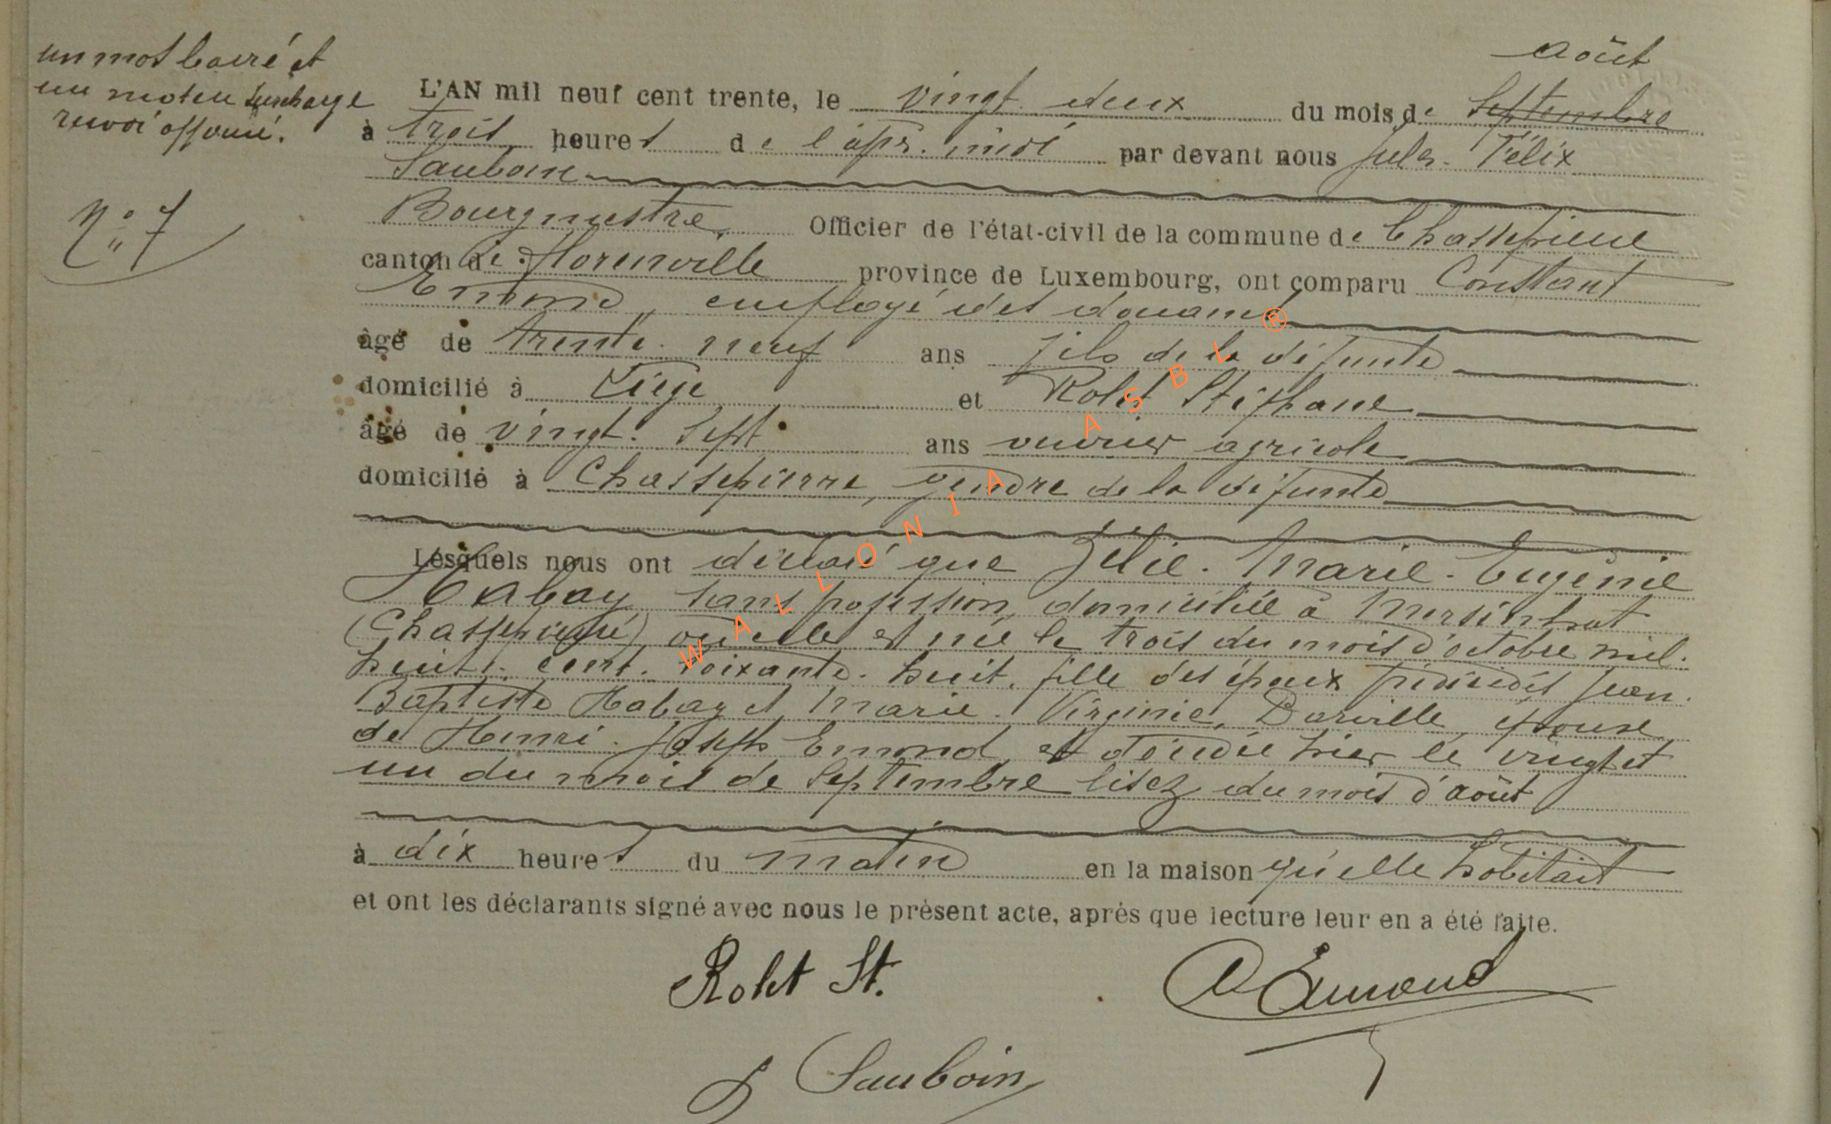 un mot barré et
un mot en surcharge
renvoi approuvé.
N° 7
août
L'AN mil neuf cent trente, le vingt-deux du mois de Septembre
à trois heures de l'après-midi par devant nous Jules-Félix
Sauboin
Bourgmestre, Officier de l'état-civil de la commune de Chassepierre
canton de Florenville province de Luxembourg, ont comparu Constant
Emond, employé des douanes
âgé de trente-neuf ans fils de la défunte
domicilié à Liége et Rolet Stéphane
âgé de vingt-sept ans ouvrier agricole
domicilié à Chassepierre, gendre de la défunte
Lesquels nous ont déclaré que Zélie-Marie-Eugénie
Habay sans profession, domiciliée à
(Chassepierre) où elle est née le trois du mois d'octobre mil-
huit-cent-soixante-huit, fille des époux Jean-
Baptiste Habay et Marie-Virginie, Barville épouse
de Henri-Joseph Emond est décédée hier le vingt et
un du mois de Septembre lisez du mois d'août
à dix heures du matin en la maison qu'elle habitait
et ont les déclarants signé avec nous le présent acte, aprés que lecture leur en a été faite.
Rolet St. C Emond
J Sauboin
WALLONIA ASBL ®